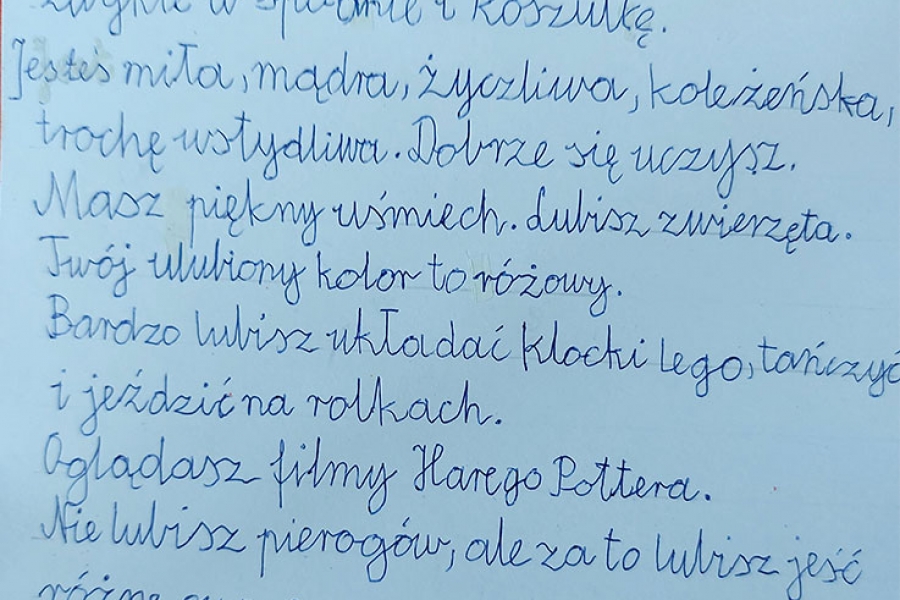 zwykle w spodnie i koszulkę.
Jesteś miła, mądra, życzliwa, koleżeńska,
trochę wstydliwa. Dobrze się uczysz.
Masz piękny uśmiech. Lubisz zwierzęta.
Twój ulubiony kolor to różowy.
Bardzo lubisz układać klocki lego, tańczyć
i jeździć na rolkach.
Oglądasz filmy Harego Pottera.
Nie lubisz pierogów, ale za to lubisz jeść
różne